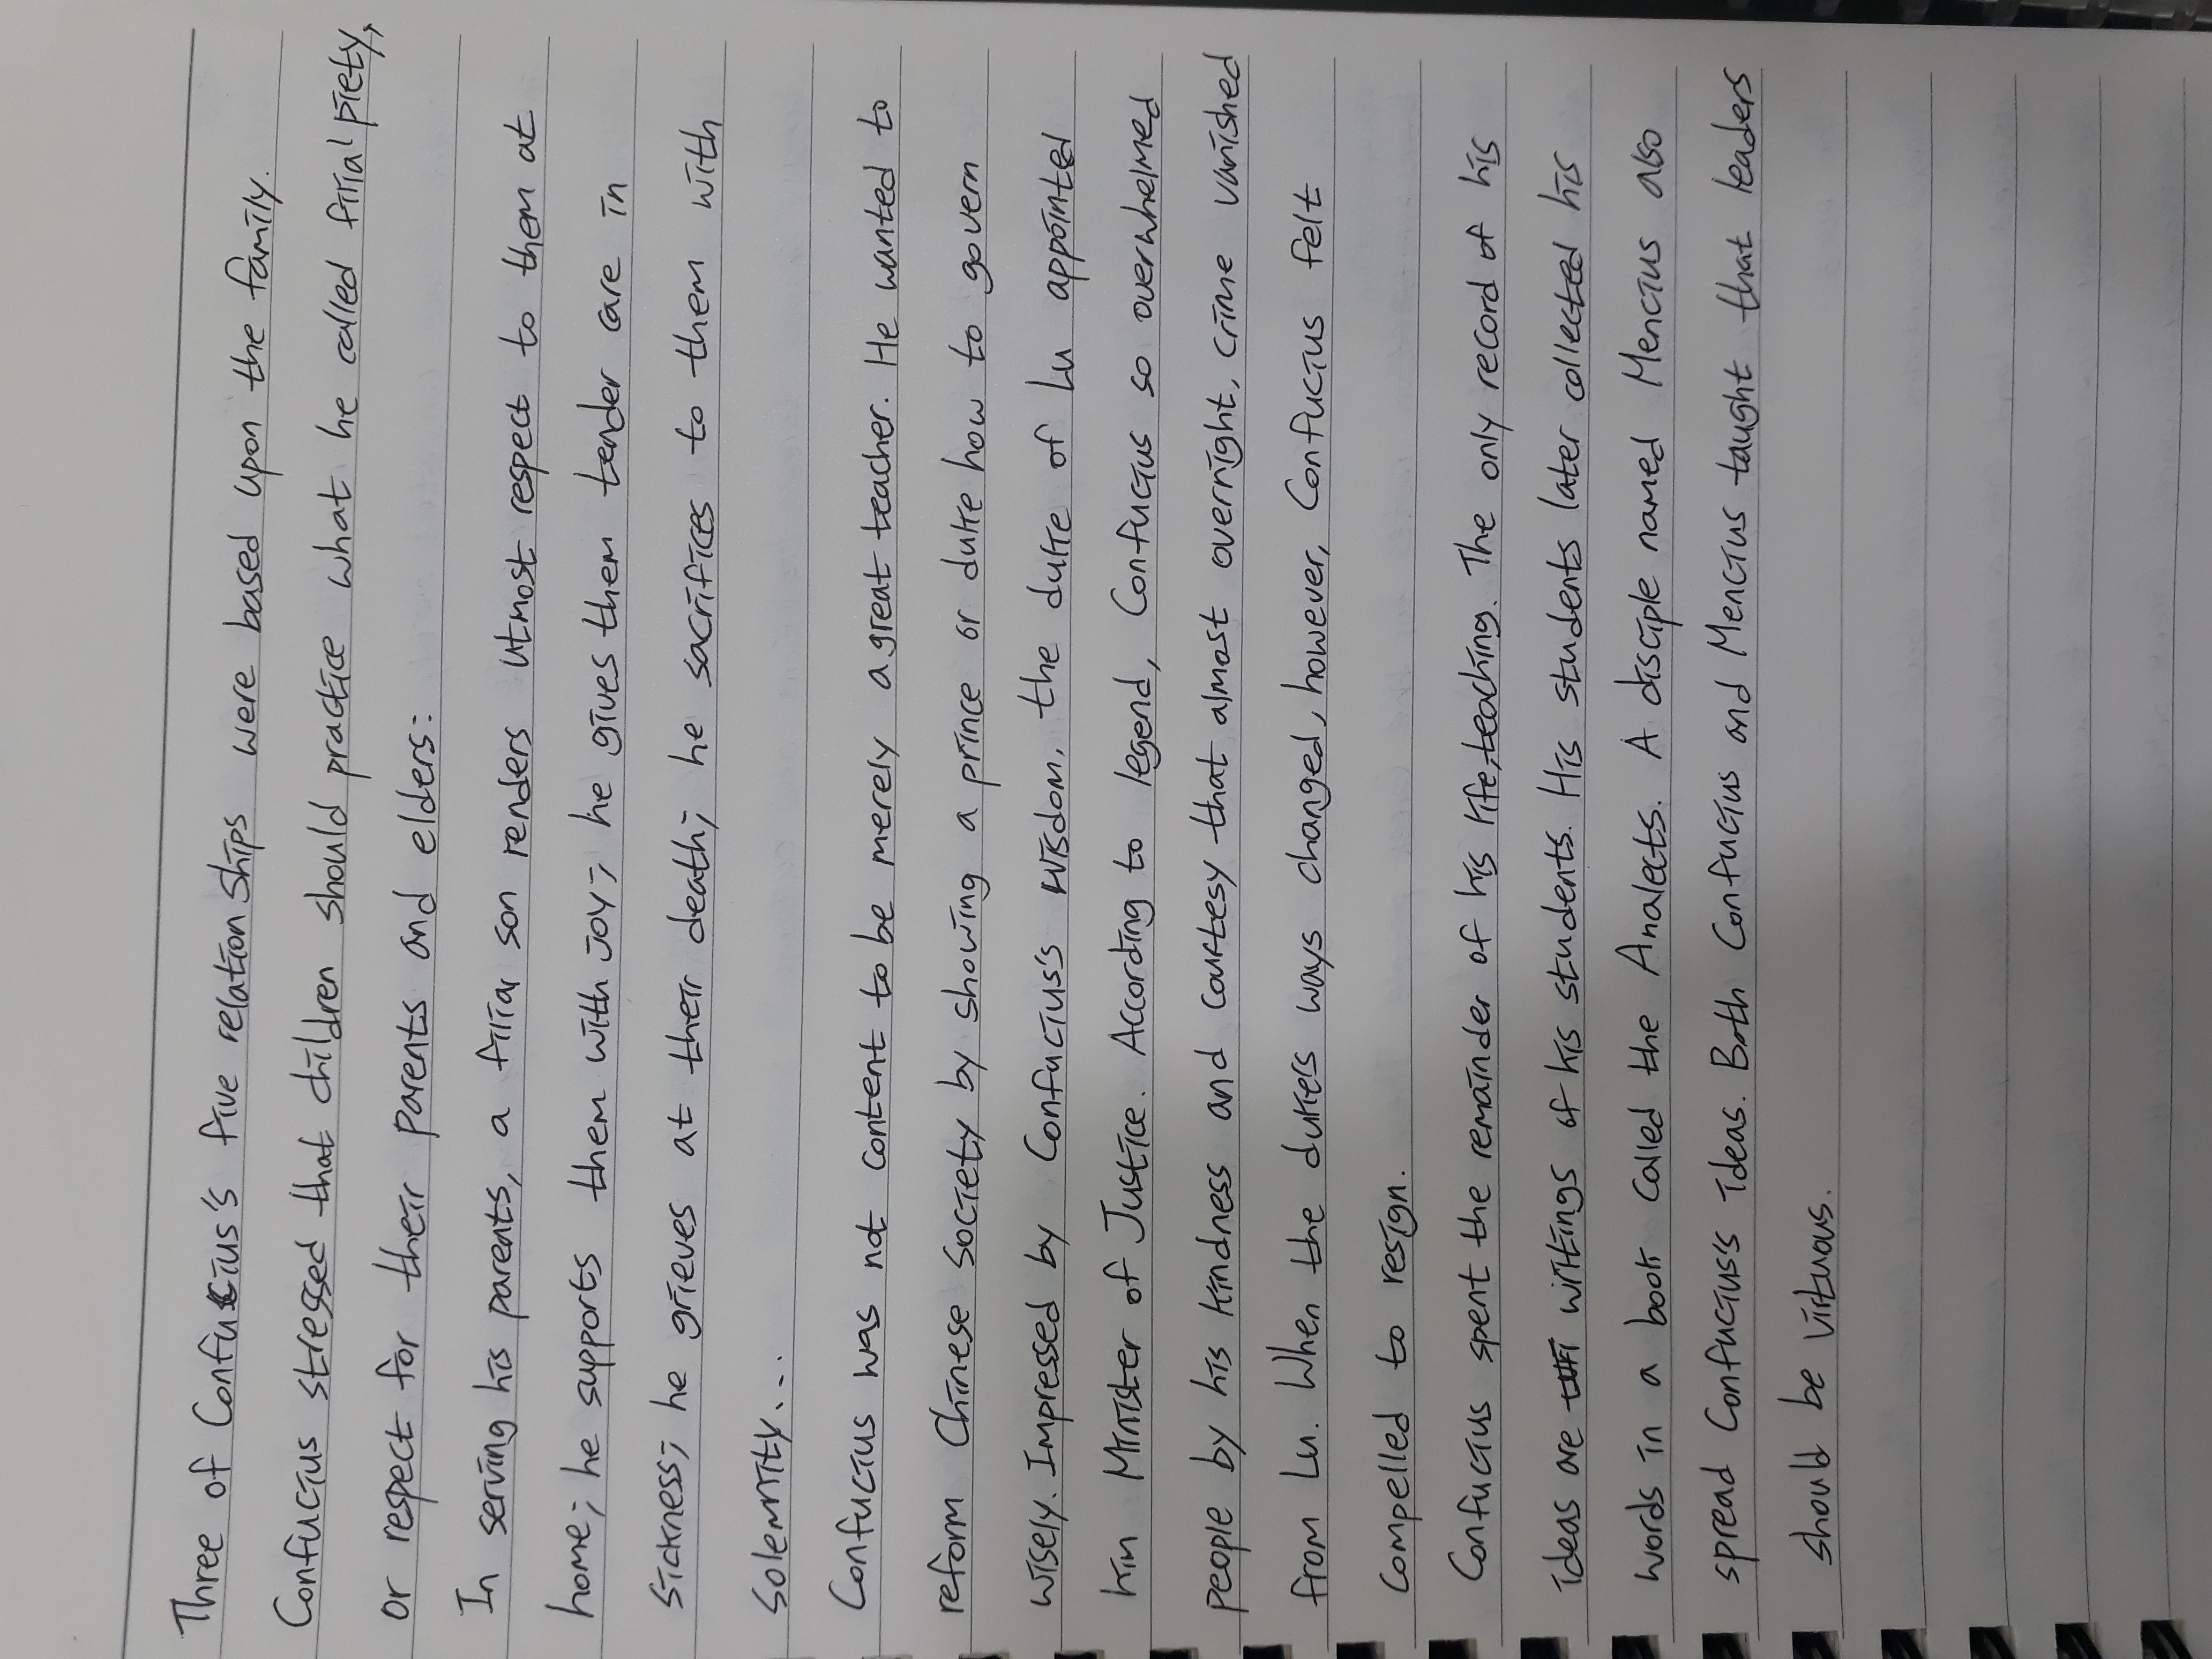 Three of Confucius's five relationships were based upon the family.
Confucius stressed that children should practice what he called filial piety,
or respect for their parents and elders:
In serving his parents, a filial son renders utmost respect to them at
home; he supports them with joy; he gives them tender care in
sickness; he grieves at their death; he sacrifices to them with
solemnity...
Confucius was not content to be merely a great teacher. He wanted to
reform Chinese society by showing a prince or duke how to govern
wisely. Impressed by Confucius's wisdom, the duke of Lu appointed
him Minister of Justice. According to legend, Confucius so overwhelmed
people by his kindness and courtesy that almost overnight, crime vanished
from Lu. When the duke's ways changed, however, Confucius felt
compelled to resign.
Confucius spent the remainder of his life, teaching. The only record of his
ideas are writings of his students. His students later collected his
words in a book called the Analects. A disciple named Mencius also
spread Confucius's ideas. Both Confucius and Mencius taught that leaders
should be virtuous.